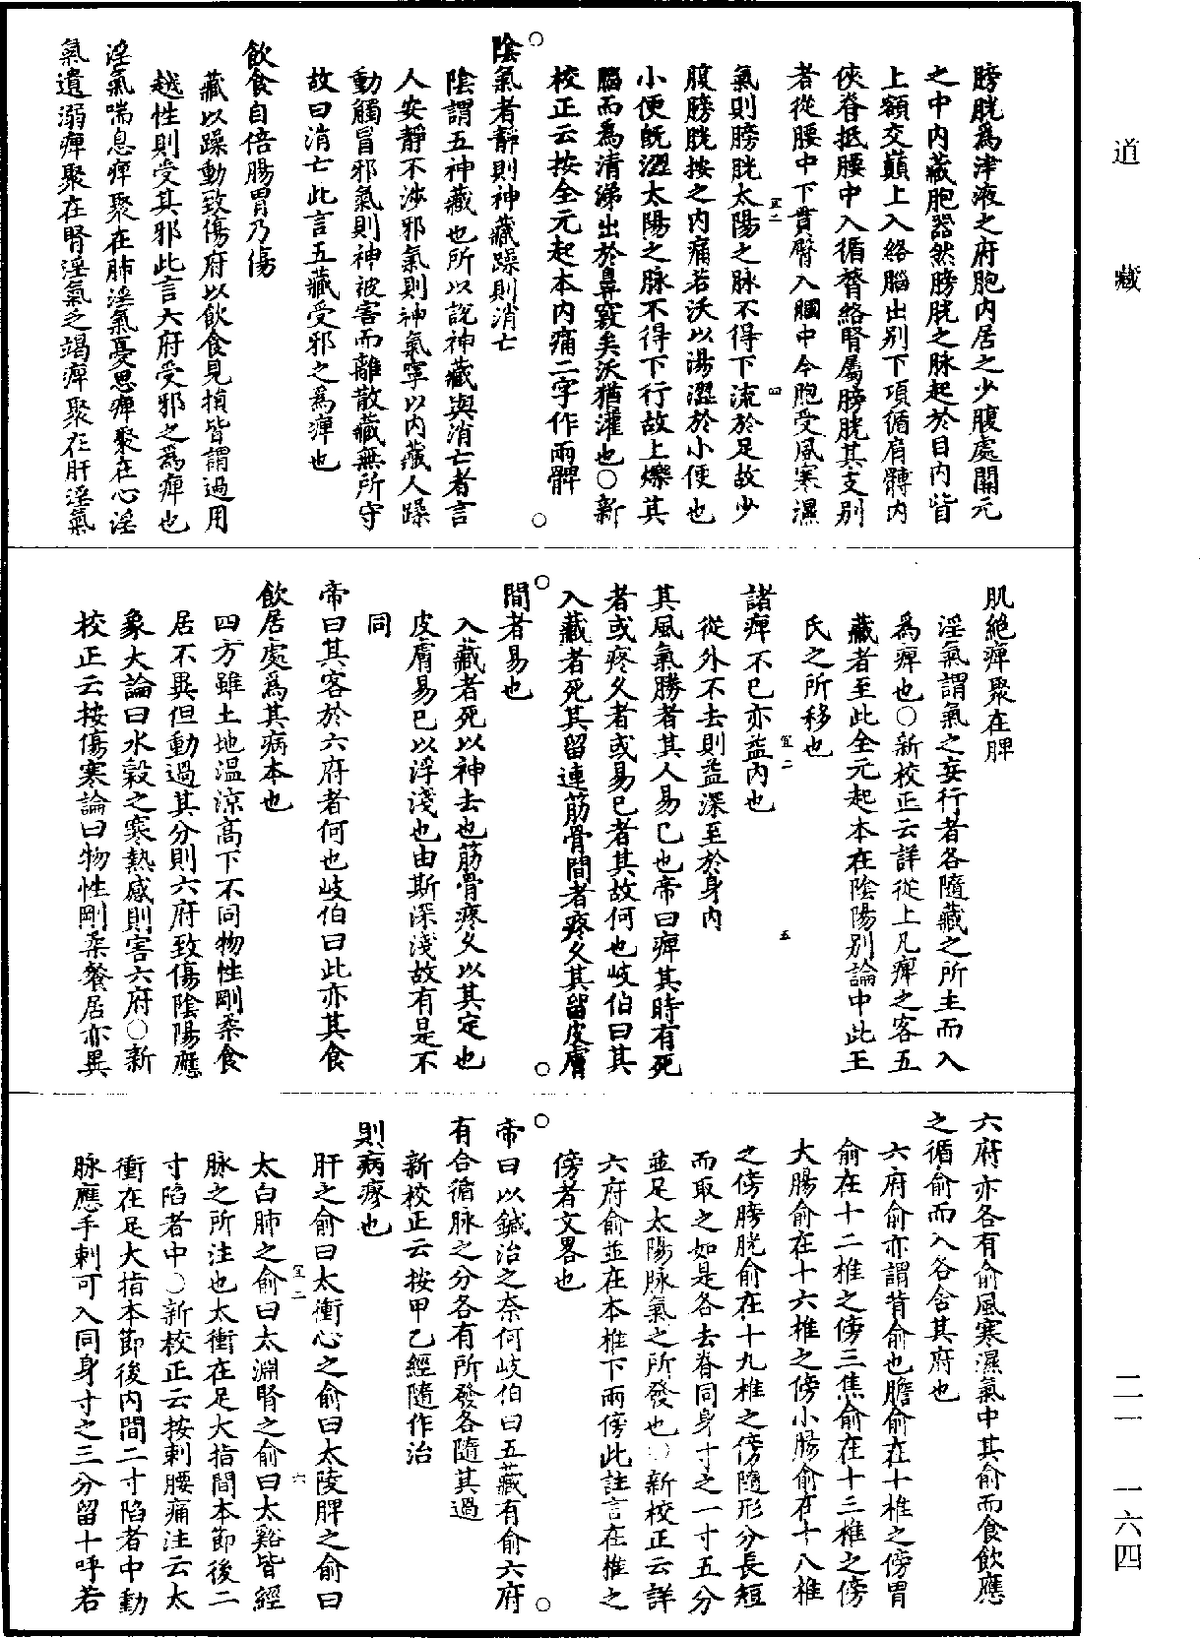 膀胱爲津液之府胞內居之少腹處關元
之中內藏胞器然膀胱之脉起於目內眥
上額交巔上入絡腦出別下項循肩髆內
俠脊抵腰中入循膂絡腎屬膀胱其支別
者從腰中下貫臀入膕中今胞受風寒濕
氣則膀胱太陽之脉不得下流於足故少
腹膀胱按之內痛若沃以湯澀於小便也
小便旣澀太陽之脉不得下行故上爍其
腦而爲清涕出於鼻竅矣沃猶灌也○新
校正云按全元起本內痛二字作兩髀
陰氣者靜則神藏躁則消亡
陰謂五神藏也所以說神藏與消亡者言
人安靜不涉邪氣則神氣寧以內藏人躁
動觸冒邪氣則神被害而離散藏無所守
故曰消亡此言五藏受邪之爲痺也
飲食自倍腸胃乃傷
藏以躁動致傷府以飲食見損皆謂過用
越性則受其邪此言六府受邪之爲痺也
淫氣喘息痺聚在肺淫氣憂思痺聚在心淫
氣遺溺痺聚在腎淫氣乏竭痺聚在肝淫氣
肌絕痺聚在脾
淫氣謂氣之妄行者各隨藏之所主而入
爲痺也○新校正云詳從上凡痺之客五
藏者至此全元起本在陰陽別論中此王
氏之所移也
諸痺不已亦益內也
從外不去則益深至於身內
其風氣勝者其人易已也帝曰痺其時有死
者或疼久者或易已者其故何也岐伯曰其
入藏者死其留連筋骨間者疼久其留皮膚
間者易也
入藏者死以神去也筋骨疼久以其定也
皮膚易已以浮淺也由斯深淺故有是不
同
帝曰其客於六府者何也岐伯曰此亦其食
飲居處爲其病本也
四方雖土地温涼高下不同物性剛柔食
居不異但動過其分則六府致傷陰陽應
象大論曰水穀之寒熱感則害六府○新
校正云按傷寒論曰物性剛柔餐居亦異
六府亦各有俞風寒濕氣中其俞而食飲應
之循俞而入各舍其府也
六府俞亦謂背俞也膽俞在十椎之傍胃
俞在十二椎之傍三焦俞在十三椎之傍
大腸俞在十六椎之傍小腸俞在十八椎
之傍膀胱俞在十九椎之傍隨形分長短
而取之如是各去脊同身寸之一寸五分
並足太陽脉氣之所發也○新校正云詳
六府俞並在本椎下兩傍此註言在椎之
傍者文畧也
帝曰以鍼治之奈何岐伯曰五藏有俞六府
有合循脉之分各有所發各隨其過
新校正云按甲乙經隨作治
則病瘳也
肝之俞曰太衝心之俞曰太陵脾之俞曰
太白肺之俞曰太淵腎之俞曰太谿皆經
脉之所注也太衝在足大指間本節後二
寸陷者中○新校正云按剌腰痛注云太
衝在足大指本節後內間二寸陷者中動
脉應手剌可入同身寸之三分留十呼若
道
藏
二一
一六四